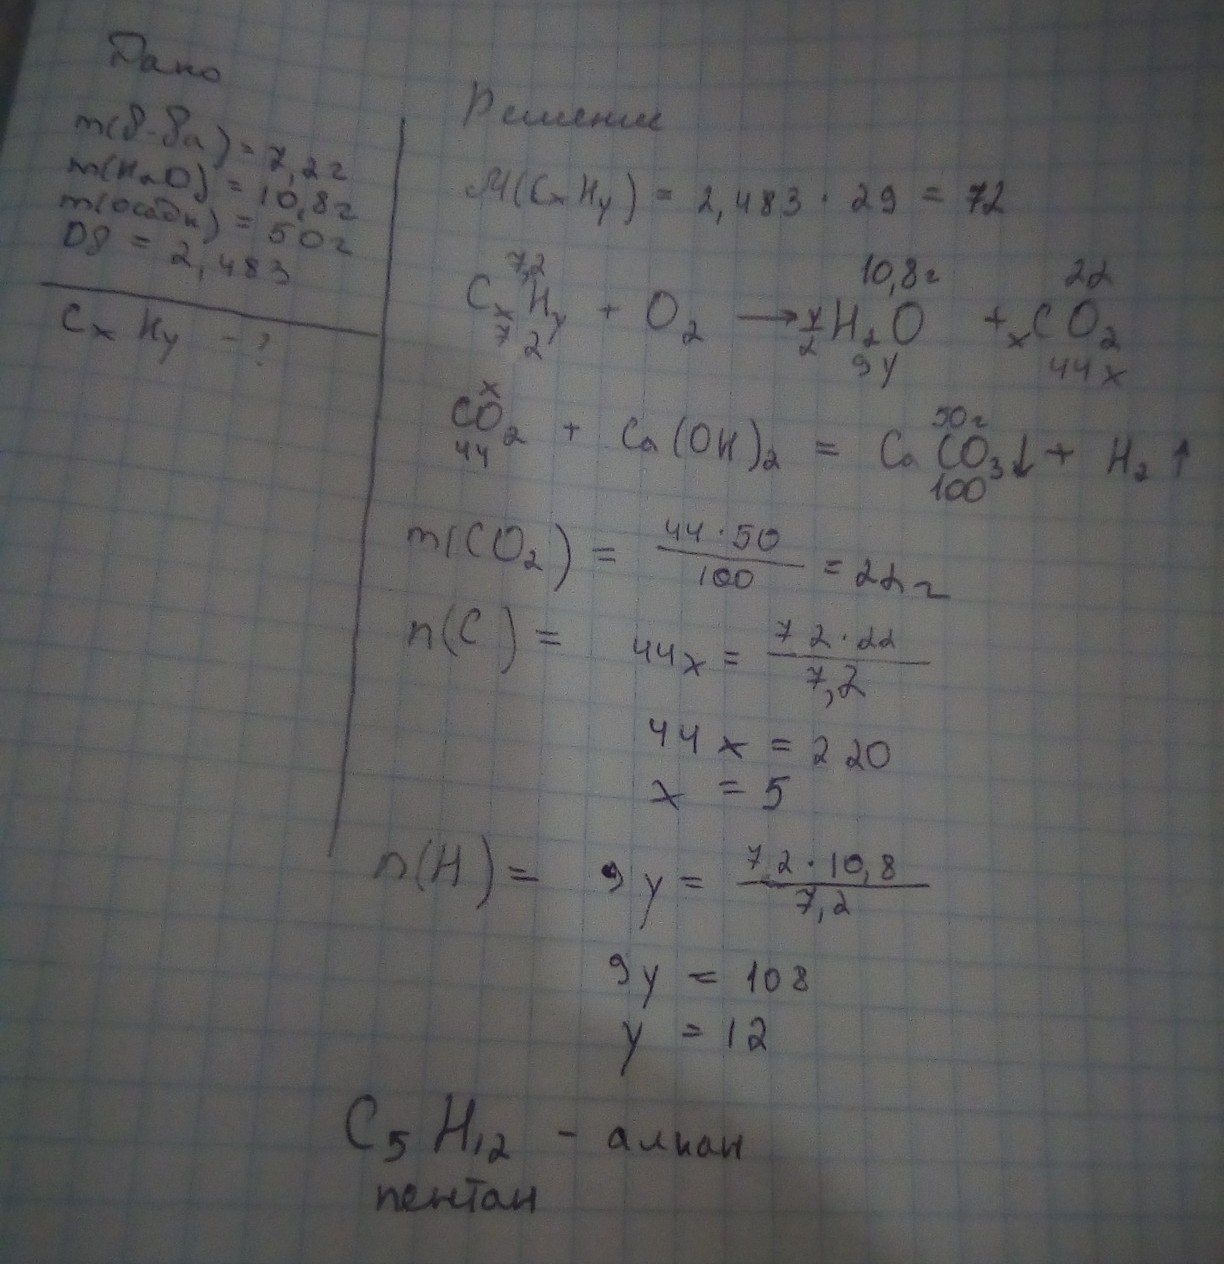 Дано
m(в-ва) = 7,2г
m(H2O) = 10,8г
m(осадк) = 50г
DB = 2,483
CxHy - ?
Решение
M(CxHy) = 2,483 · 29 = 72
7,2 10,8г 22
CxHy + O2 → y/2 H2O + xCO2
72 9y 44x
x 50г
CO2 + Ca(OH)2 = CaCO3↓ + H2↑
44 100
m(CO2) = 44·50/100 = 22г
n(C) = 44x = 72·22/7,2
44x = 220
x = 5
n(H) = 9y = 72·10,8/7,2
9y = 108
y = 12
C5H12 - алкан
пентан